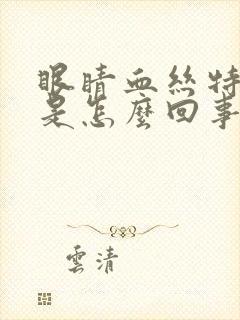 眼睛血絲特
是怎麼回事
雲清